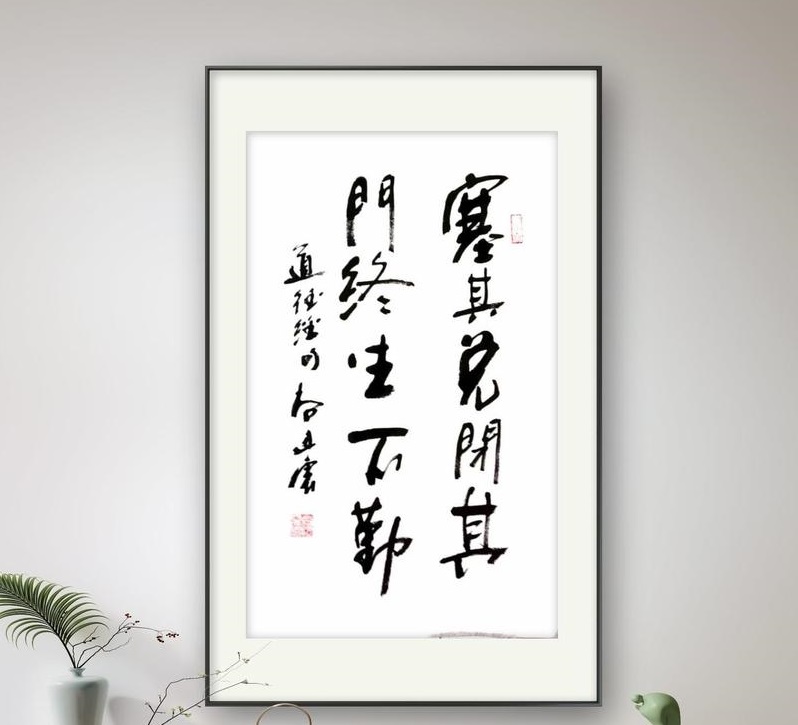 塞其兑閉其
門終生不勤
道德經句